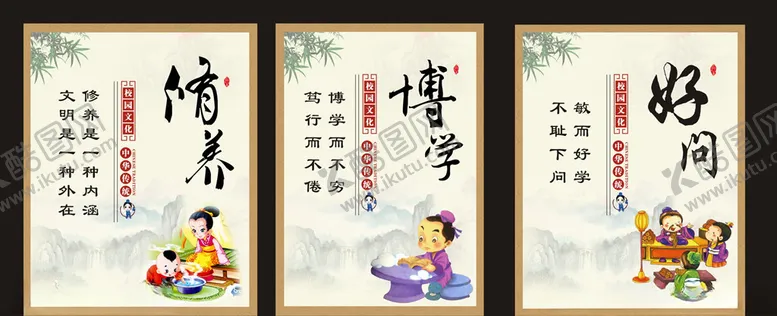 修养
校园文化
中华传统
修养是一种内涵
文明是一种外在
博学
校园文化
中华传统
博学而不穷
笃行而不倦
好问
校园文化
中华传统
敏而好学
不耻下问
酷图网
www.ikutu.com
酷图网
www.ikutu.com
酷图网
www.ikutu.com